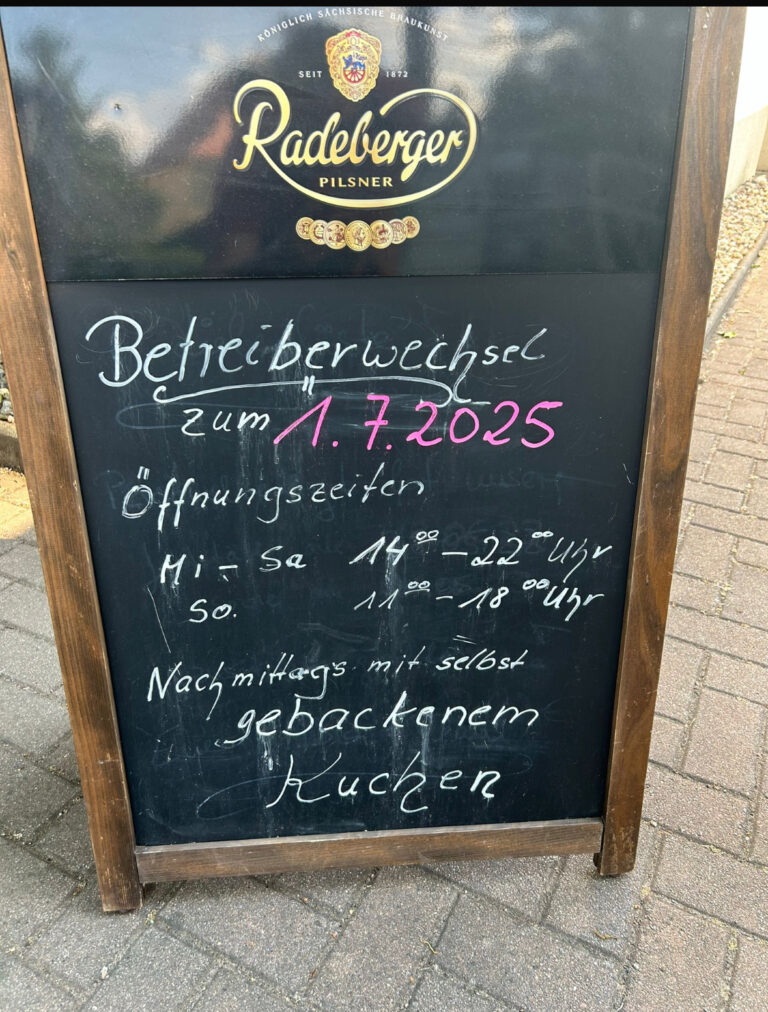 KÖNIGLICH SÄCHSISCHE BRAUKUNST
SEIT 1872
Radeberger
PILSNER
Betreiberwechsel
zum 1.7.2025
Öffnungszeiten
Mi - Sa 14⁰⁰ - 22⁰⁰ Uhr
So. 11⁰⁰ - 18⁰⁰ Uhr
Nachmittags mit selbst
gebackenem
Kuchen